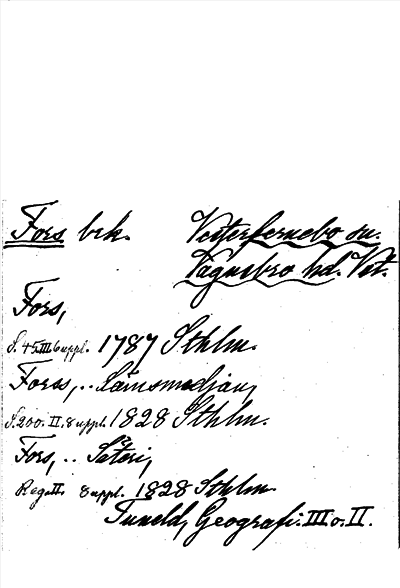 Fors brk. Vesterfernebo sn.
Vagnsbro hd. Vst.
Fors,
S. 45. III. 6 uppl. 1787 Sthlm.
Forss, .. Länsmedjan,
S. 200. II. 8 uppl. 1828 Sthlm.
Fors, .. Säteri,
Reg. II. 8 uppl. 1828 Sthlm.
Tuneld, Geografi. III o. II.